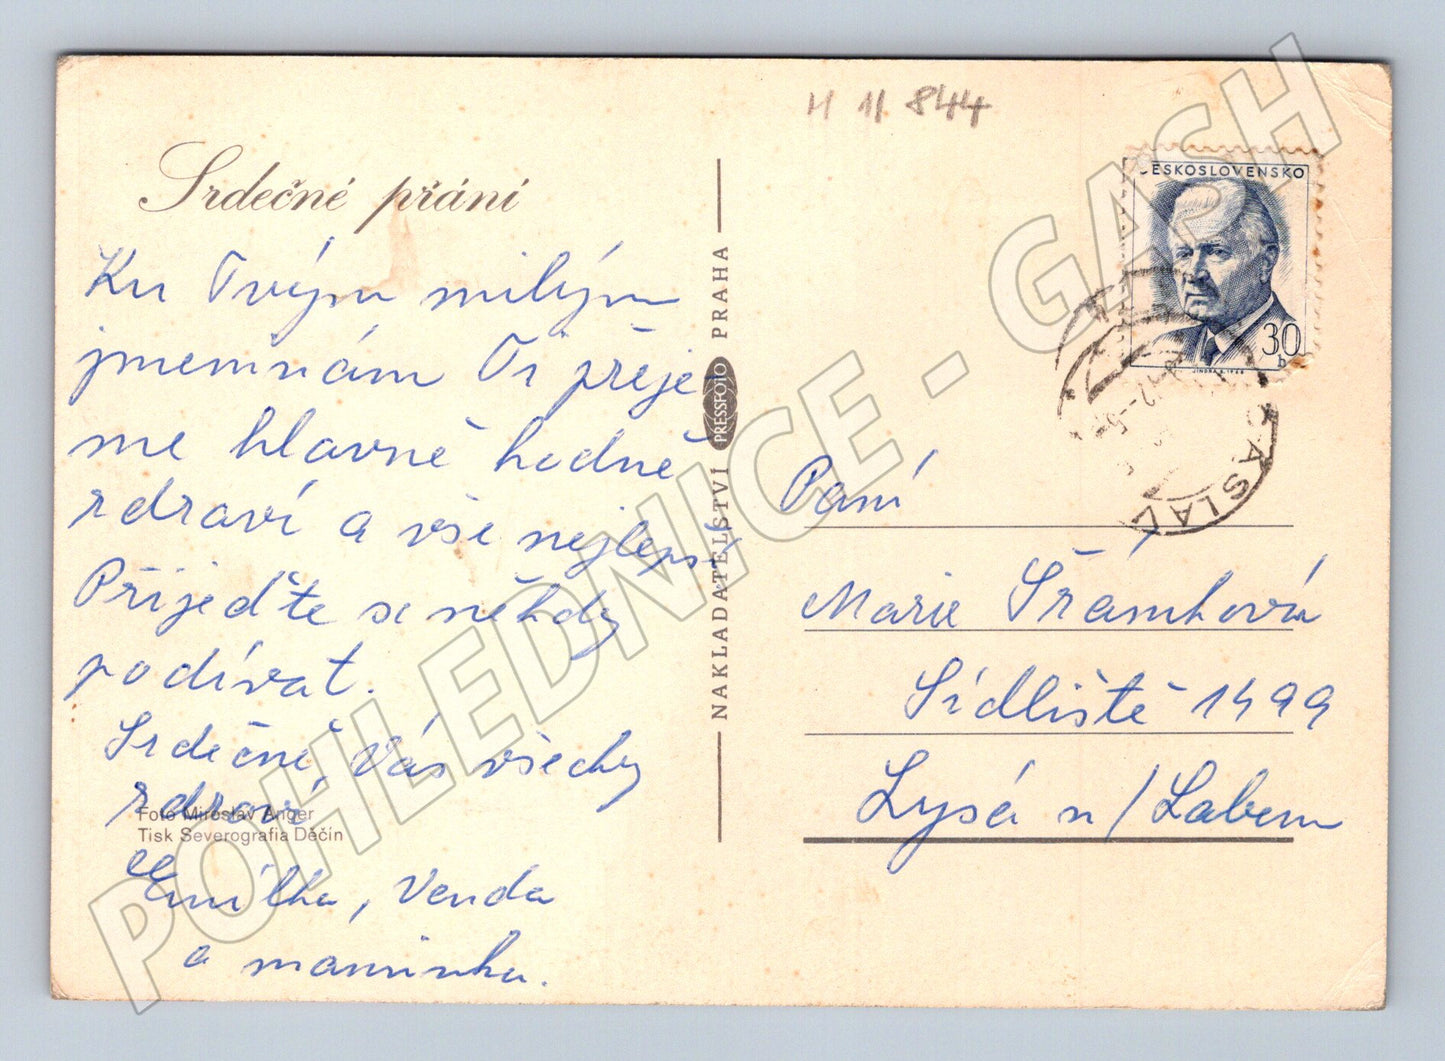 H 11 844
Srdečné přání
Ku Tvým milým
jmeninám Ti přeje-
me hlavně hodně
zdraví a vše nejlepší
Přijeďte se někdy
podívat.
Srdečně Vás všechny
zdraví
Emilka, Venda
a maminka.
Foto Miroslav Anger
Tisk Severografia Děčín
NAKLADATELSTVÍ PRESSFOTO PRAHA
ČESKOSLOVENSKO
30
h
JINDRA 1968
ČÁSLAV
Paní
Marie Šrámková
Sídliště 1499
Lysá n/Labem
POHLEDNICE - GASH